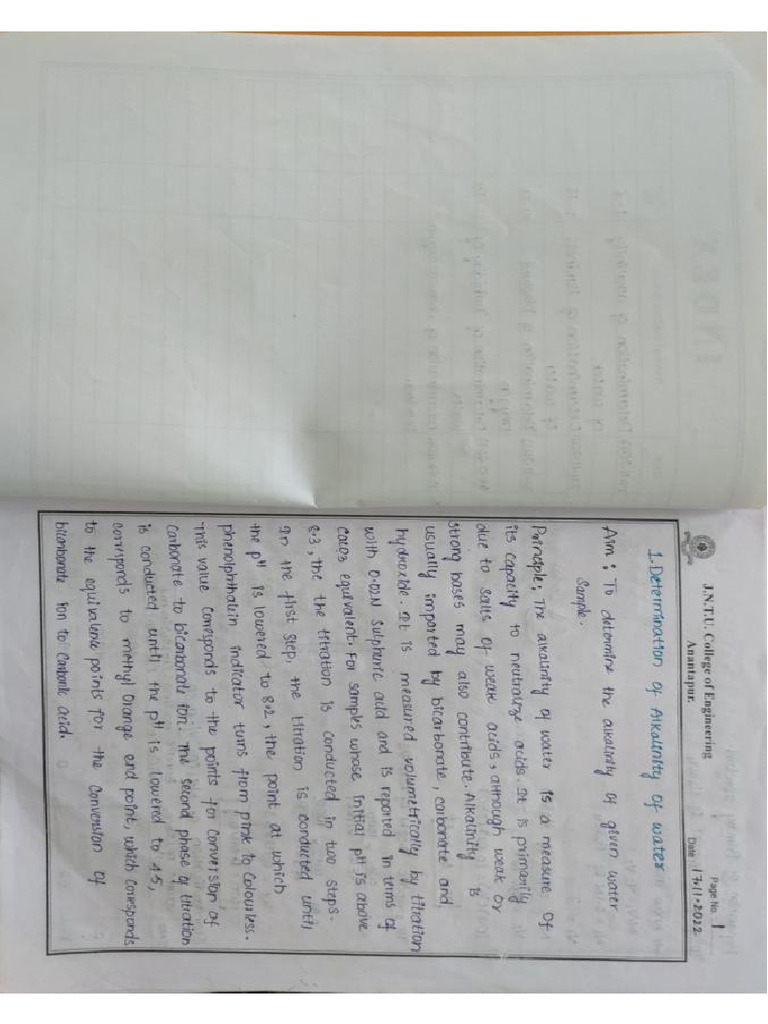 J.N.T.U. College of Engineering
Anantapur.
Page No. 1
Date : 17.11.2022
1. Determination of Alkalinity of water
Aim : To determine the alkalinity of given water
Sample.
Principle; The alkalinity of water is a measure of
its capacity to neutralize acids. It is primarily
due to salts of weak acids, although weak or
strong bases may also contribute. Alkalinity is
usually imparted by bicarbonate, carbonate and
hydroxide. It is measured volumetrically by titration
with 0.02N Sulphuric acid and is reported in terms of
CaCO3 equivalent. For samples whose initial pH is above
8.3, the the titration is conducted in two steps.
In the first step, the titration is conducted until
the pH is lowered to 8.2, the point at which
phenolphthalein indicator turns from pink to colourless.
This value corresponds to the points for conversion of
carbonate to bicarbonate ion. The second phase of titration
is conducted until the pH is lowered to 4.5,
corresponds to methyl orange end point, which corresponds
to the equivalente points for the conversion of
bicarbonate ion to carbonic acid.